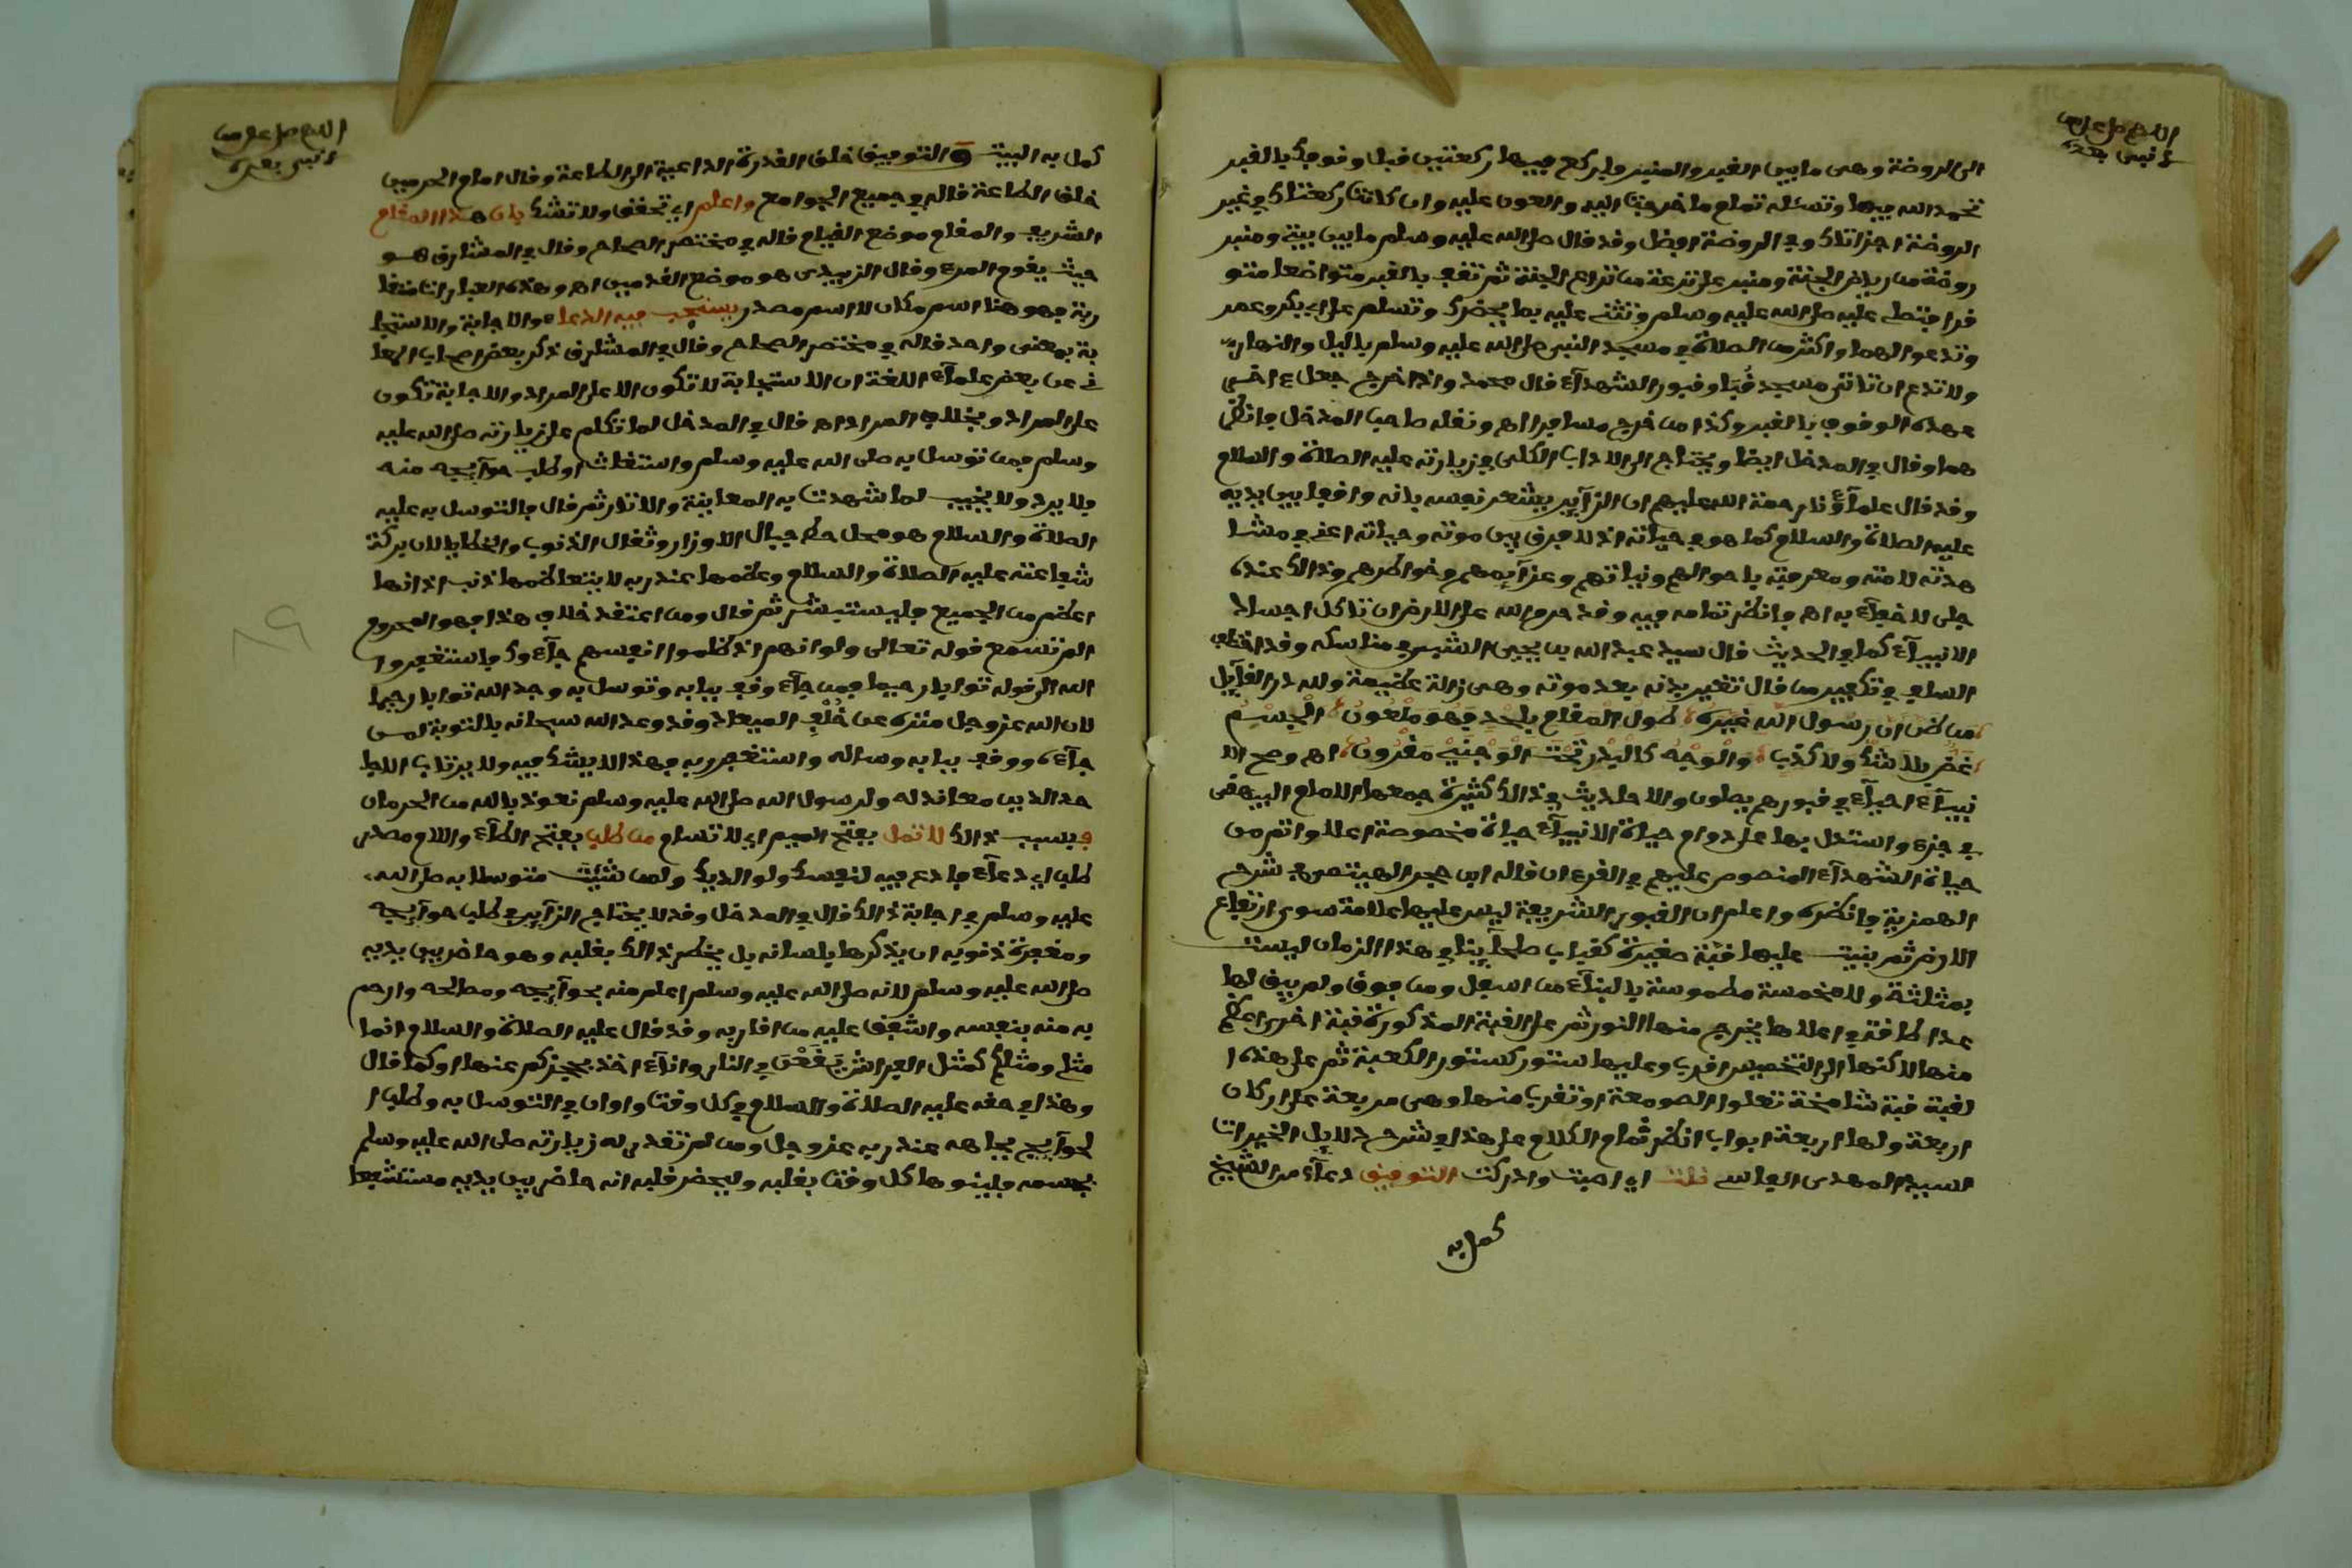 اللهم صل على من
لا نبي بعده
الى الروضة وهى ما بين القبر والمنبر واركع فيها ركعتين قبل وقوفك بالقبر
تحمد الله فيها وتسئله تمام ما خرجت اليه والعون عليه وان كانت ركعتاك في غير
الروضة اجزاتاك وفي الروضة افضل وقد قال صلى الله عليه وسلم ما بين بيتى ومنبر
روضة من رياض الجنة ومنبر على ترعة من ترع الجنة ثم تقف بالقبر متواضعا متو
قرا فتصلى عليه صلى الله عليه وسلم وتثنى عليه بما يحضرك وتسلم على ابى بكر وعمر
وتدعوا لهما واكثر من الصلاة في مسجد النبى صلى الله عليه وسلم بالليل والنهار
ولا تدع ان تاتى مسجد قُبا وقبور الشهدآء قال محمد واذا خرج جعل ءاخر
عهده الوقوف بالقبر وكذا من خرج مسافرا اهـ ونقله صاحب المدخل فانظر
هما وقال في المدخل ايضا ويحتاج الى الادب الكلى في زيارته عليه الصلاة والسلام
وقد قال علماؤنا رحمة الله عليهم ان الزآير يشعر نفسه بانه واقف بين يديه
عليه الصلاة والسلام كما هو في حياته اذ لا فرق بين موته وحياته اعنى في مشا
هدته لامته ومعرفته باحوالهم ونياتهم وعزآيمهم وخواطرهم وذالك عنده
جلى لا خفآء به اهـ فانظر تمامه فيه وقد حرم الله على الارض ان تاكل اجساد
الانبيآء كما في الحديث قال سيد عبد الله بن يحيى الشبر في مناسكه وقد اختلف
السلف في تكفير من قال تغير بدنه بعد موته وهى زلة عظيمة ولله در القآيل
من ظن ان رسول الله غيره طول المقام بلحد فهو ملعون الجسم
غض بلا شك ولا كذب والوجه كالبدر تحت الوجنتي مقرون اهـ وصح الا
نبيآء احيآء في قبورهم يصلون والاحاديث في ذالك كثيرة جمعها الامام البيهقى
في جزء واستدل بها على دوام حياة الانبيآء حياة مخصوصة اعلا واتم من
حياة الشهدآء المنصوص عليهم في القرءان قاله ابن حجر الهيتمى في شرح
الهمزية فانظره واعلم ان القبور الشريفة ليس عليها علامة سوى ارتفاع
الارض ثم بنيت عليها قبة صغيرة كقباب صلحآينا في هذا الزمان ليست
بمثلثة ولا مخمسة مطموسة بالبنآء من اسفل ومن فوق ولم يبق لها
عدا طاقة في اعلاها يخرج منها النور ثم على القبة المذكورة قبة اخرى اعظم
منها لاكنها الى التخميس اقرب وعليها ستور كستور الكعبة ثم على هذه ا
لقبة قبة شامخة تعلوا الصومعة او تقرب منها وهى مربعة على اركان
اربعة ولها اربعة ابواب انظر تمام الكلام على هذا في شرح دلايل الخيرات
السيد المهدى الفاسى نلت اي اصبت وادركت التوفيق دعآء من الشيخ
كمل به
اللهم صل على من
لا نبي بعده
كمل به البيت و التوفيق خلق القدرة الداعية الى الطاعة وقال امام الحرمين
خلق الطاعة قاله في جميع الجوامع واعلم اي تحقق ولا تشك بان هذا المقام
الشريف والمقام موضع القيام قاله في مختصر الصحاح وقال في المشارق هو
حيث يقوم المرء وقال الزبيدى هو موضع القدمين اهـ وهذه العبارات متقا
ربة فهو هنا اسم مكان لا اسم مصدر يستجب فيه الدعاء والاجابة والاستجا
بة بمعنى واحد قاله في مختصر الصحاح وقال في المشارق ذكر بعض اصحاب المعا
نى عن بعض علمآء اللغة ان الاستجابة لا تكون الا على المراد والاجابة تكون
على المراد وبخلاف المراد اهـ قال في المدخل لما تكلم على زيارته صلى الله عليه
وسلم فمن توسل به صلى الله عليه وسلم واستغاث او طلب حوآيجه منه
فلا يرد ولا يخيب لما شهدت به المعاينة والاثار ثم قال فالتوسل به عليه
الصلاة والسلام هو محل حط جبال الاوزار وثقال الذنوب والخطايا لان بركة
شفاعته عليه الصلاة والسلام وعظمها عند ربه لا يتعاظمها ذنب اذ انها
اعظم من الجميع فليستبشر ثم قال ومن اعتقد خلاف هذا فهو المحروم
الم تسمع قوله تعالى ولو انهم اذ ظلموا انفسهم جآءوك فاستغفروا
الله الى قوله توابا رحيما فمن جآءه وقف ببابه وتوسل به وجد الله توابا رحيما
لان الله عز وجل منزه عن خُلْفِ الميعاد وقد وعد الله سبحانه بالتوبة لمن
جآءه ووقف ببابه وساله واستغفر ربه فهذا لا يشك فيه ولا يرتاب الا جا
حد للدين معاند لله ولرسول الله صلى الله عليه وسلم نعوذ بالله من الحرمان
فبسبب ذالك لا تمل بفتح الميم اي لا تسام من طلب بفتح الطآء واللام مصدر
طلب اي دعآء فادع فيه لنفسك ولوالديك ولمن شئت متوسلا به صلى الله
عليه وسلم في اجابة ذالك قال في المدخل وقد لا يحتاج الزآير في طلب حوآيجه
ومغفرة ذنوبه ان يذكرها بلسانه بل يحضر ذالك بقلبه وهو حاضر بين يديه
صلى الله عليه وسلم لانه صلى الله عليه وسلم اعلم منه بحوآيجه ومصالحه وارحم
به منه بنفسه واشفق عليه من اقاربه وقد قال عليه الصلاة والسلام انما
مثلى ومثلكم كمثل الفراش تقعون في النار وانآء اخذ بحجزكم عنها او كما قال
وهذا في حقه عليه الصلاة والسلام في كل وقت واوان في التوسل به وطلب ا
لحوآيج بجاهه عند ربه عز وجل ومن لم تقدر له زيارته صلى الله عليه وسلم
بجسمه فلينوها كل وقت بقلبه وليحضر قلبه انه حاضر بين يديه مستشفعا